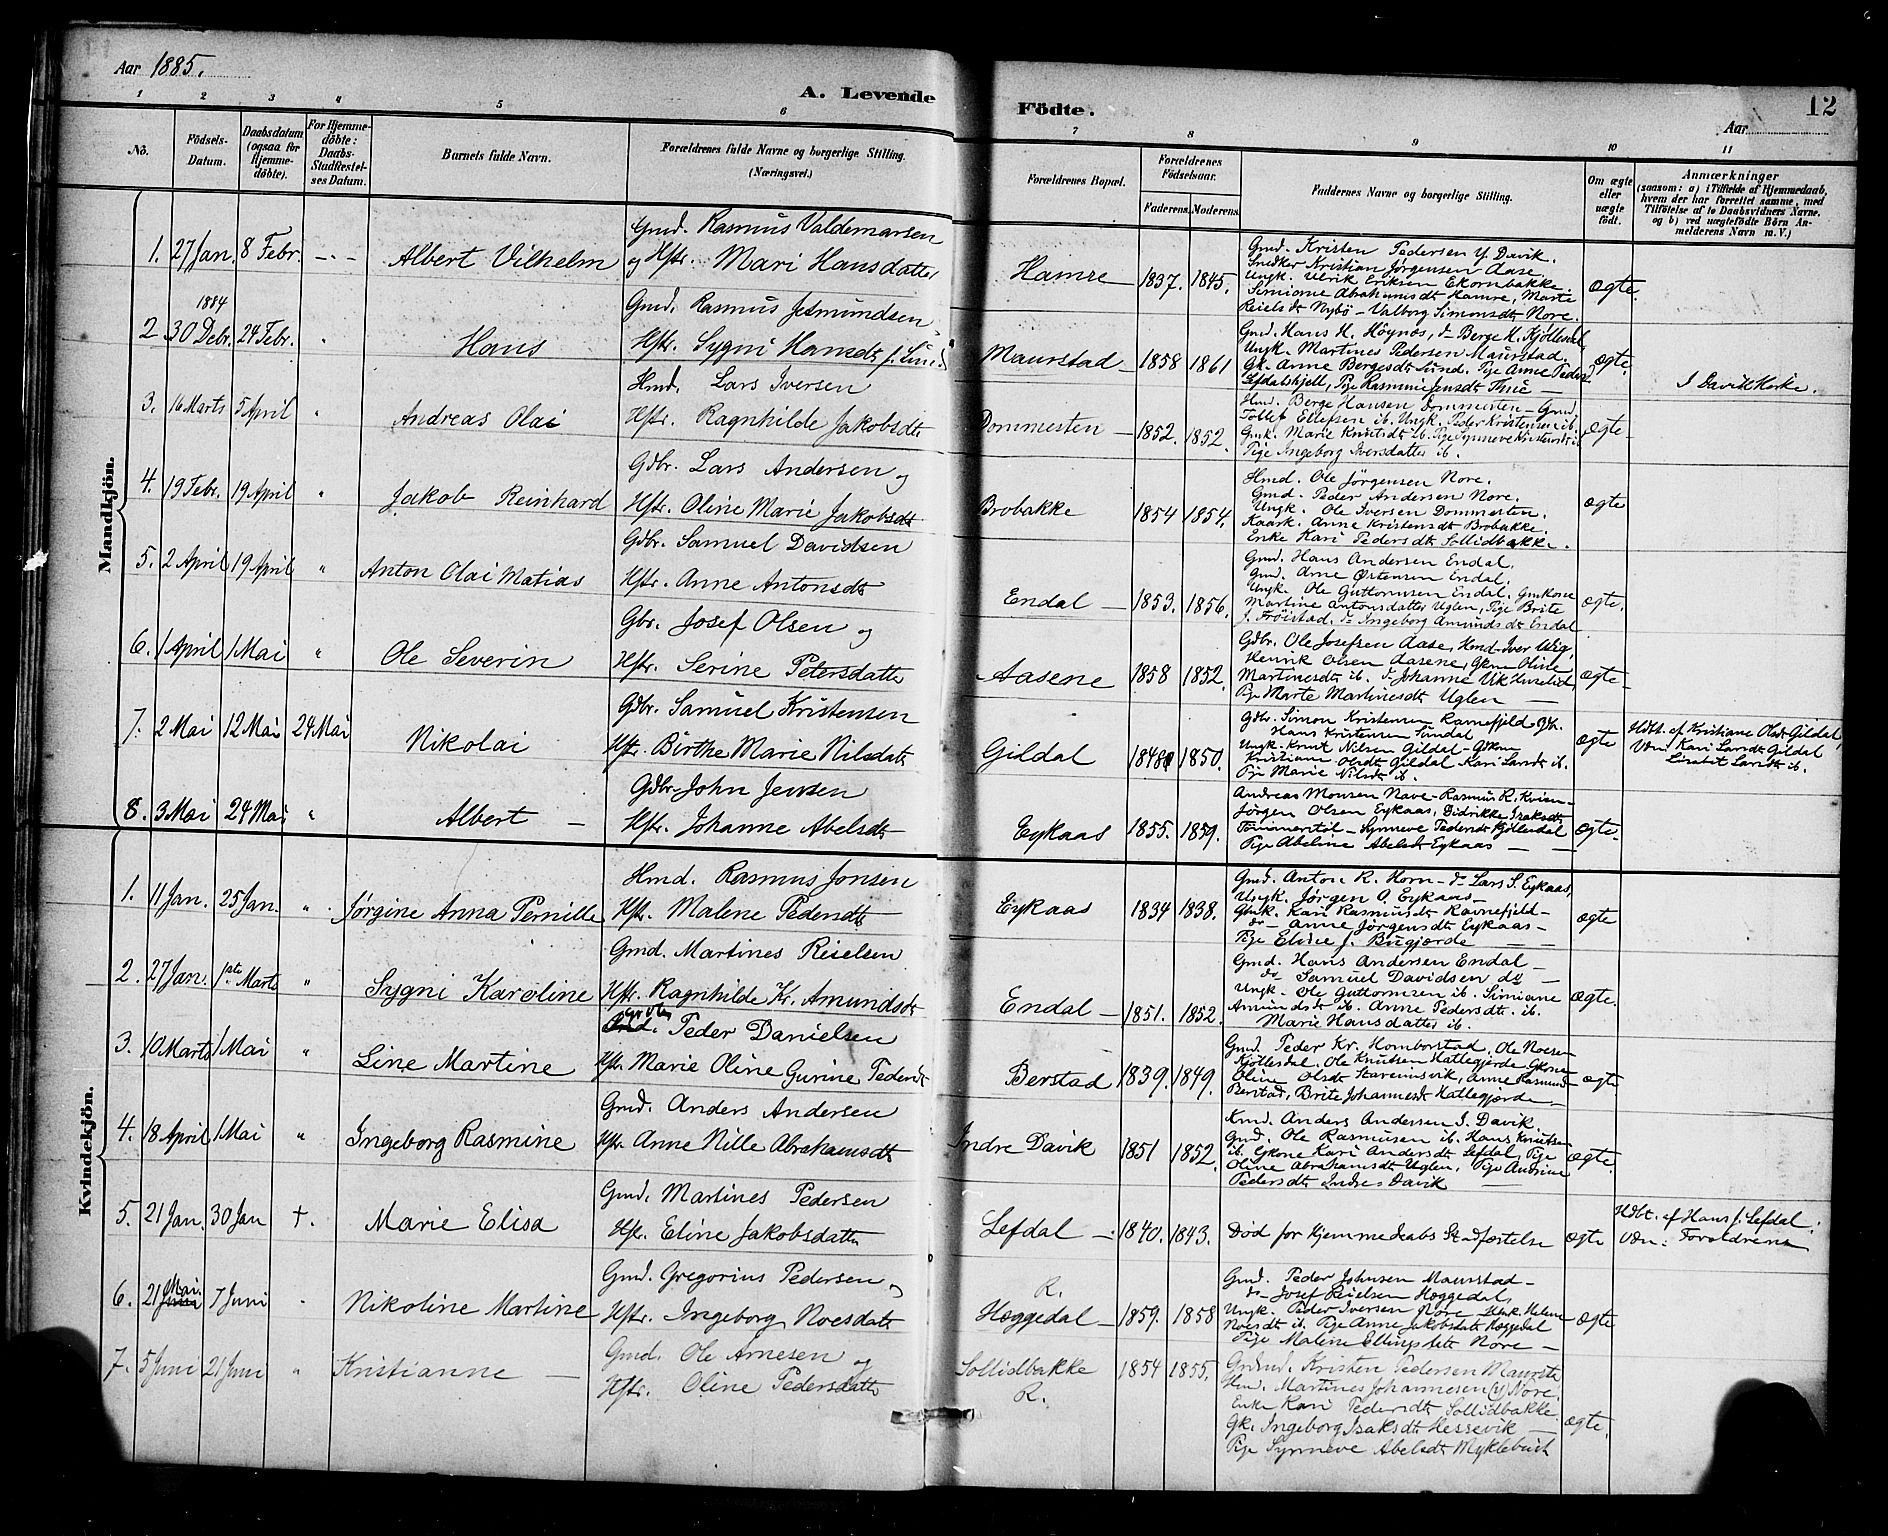 Aar 1885.
A. Levende Födte.
12
Aar
1 2 3 4 5 6 7 8 9 10 11
No.
Födsels-Datum.
Daabsdatum (ogsaa for Hjemmedöbte).
For Hjemmedöbte: Daabs-Stadfæstelses Datum.
Barnets fulde Navn.
Forældrenes fulde Navne og borgerlige Stilling. (Næringsvei.)
Forældrenes Bopæl.
Forældrenes Födselsaar.
Faderens. Moderens.
Faddernes Navne og borgerlige Stilling.
Om ægte eller uægte födt.
Anmærkninger
(saasom: a) i Tilfælde af Hjemmedaab,
hvem der har forrettet samme, med
Tilföielse af to Daabsvidners Navne,
og b) ved uægtefödte Börn Anmelderens Navn m. V.)
Mandkjön.
1. 27 Jan. 8 Febr. - - - Albert Vilhelm
Gmd. Rasmus Valdemarsen
og Hstr. Mari Hansdatter
Hamre 1837. 1845.
Gmd. Kristen Pedersen Y. Davik.
Snedker Kristian Jørgensen Aase.
Ungk. Ulrik Eriksen Ekornbakke.
Simiane Abrahamsdt Hamre, Marte
Reielsdt Nybö - Valborg Simonsdt Nore.
ægte.
2. 1884 30 Debr. 24 Febr. " Hans
Gmd. Rasmus Jetmundsen
Hstr. Sygni Hansdt
Maurstad 1858 1861
Gmd. Hans H. Höynes, do Berge H. Kjöllesdal
Ungk. Martines Pedersen Maurstad.
Gk. Anne Bergesdt Sund. Pige Anne Peders
Pige Rasmine Jensdt
ægte.
I Davik Kirke.
3. 16 Marts 5 April " Andreas Olai
Hmd. Lars Iversen
Hstr. Ragnhilde Jakobsdt
Dommesten 1852. 1852.
Hmd. Berge Hansen Dommesten - Gmd.
Tollef Ellefsen ib. Ungk. Peder Kristensen ib.
Gmk. Marie Knutsdt ib. Pige Synneve Kristensdt ib.
Pige Ingeborg Iversdatter ib.
ægte
4. 19 Febr. 19 April " Jakob Reinhard
Gdbr. Lars Andersen og
Hstr. Oline Marie Jakobsdt
Brobakke 1854 1854.
Hmd. Ole Jörgensen Nore.
Gmd. Peder Andersen Nore.
Ungk. Ole Iversen Dommesten.
Kaark. Anne Kristensdt Brobakke.
Enke Kari Pedersdt Sollidbakke.
ægte
5. 2 April 19 April " Anton Olai Matias
Gdbr. Samuel Davidsen
Hstr. Anne Antonsdt
Endal 1853. 1856.
Gmd. Hans Andersen Endal.
Gmd. Arne Østensen Endal.
Ungk. Ole Guttormsen Endal. Gmkone
Martine Antonsdatter Uglen, Pige Brite
J. Fröistad, do Ingeborg Amundsdt Endal
ægte.
6. 1 April 1 Mai " Ole Severin
Gbr. Josef Olsen og
Hstr. Serine Petersdatter
Aasene 1858 1852.
Gdbr. Ole Josefsen Aase, Hmd Iver Wig,
Henrik Olsen Aasene, Gkone Oline
Martinesdt ib. do Johanne Vik
Pige Marte Martinesdt Uglen
ægte
7. 2 Mai 12 Mai 24 Mai Nikolai
Gdbr. Samuel Kristensen
Hstr. Birthe Marie Nilsdatr
Gildal 1848 1850.
Gdbr. Simon Kristensen Ravnefjeld
Hans Kristensen
Ungk. Knut Nilsen Gildal - Gdkone
Kristiane Olsdt Gildal Kari Larsdt ib.
Pige Marie Nilsdt ib.
ægte
Hdbt. af Kristiane Olsdt Gildal,
Vdn: Kari Larsdt Gildal
Lisabet Larsdt ib.
8. 3 Mai 24 Mai " Albert
Gdbr. John Jensen
Hstr. Johanne Abelsdt
Eykaas 1855. 1859.
Andreas Monsen Nave - Rasmus R. Kvien
Jørgen Olsen Eykaas, Didrikke Isaksdt
Synneve Pedersdt Kjöllesdal
Pige Abeline Abelsdt Eykaas
ægte.
Kvindekjön.
1. 11 Jan. 25 Jan. " Jørgine Anna Pernille
Hmd. Rasmus Jonsen
Hstr. Malene Pedersdt
Eykaas 1834 1838.
Gmd. Anton R. Horn - do Lars S. Eykaas,
Ungk. Jørgen O. Eykaas
Gmk. Kari Rasmusdt Ravnefjeld -
do - Anne Jørgensdt Eykaas -
Pige Eline J. Bugjerde
ægte
2. 27 Jan. 1ste Marts " Sygni Karoline
Gmd. Martines Reielsen
Hstr. Ragnhilde Kr. Amundsdt
Endal 1851. 1852.
Gmd. Hans Andersen Endal -
do Samuel Davidsen do
Ungk. Ole Guttormsen ib. Simiane
Amundsdt ib. Anne Pedersdt ib.
Marie Hansdatter ib.
ægte.
3. 10 Marts 1 Mai " Line Martine
Peder Danielsen
Hstr. Marie Oline Gurine Pedersdt
Berstad 1839. 1849.
Gmd. Peder Kr. Homborstad. Ole Noesen
Kjöllesdal. Ole Knutsen Hattegjerde Gkone
Oline Olsdt Staveinsvik, Anne Rasmusd
Berstad, Brite Johannesdt Hattegjerde
ægte
4. 18 April 1 Mai " Ingeborg Rasmine
Gmd. Anders Andersen
Hstr Anne Nille Abrahamsdt
Indre Davik 1851 1852.
Kmd. Anders Andersen I. Davik.
Gmd. Ole Rasmusen ib. Hans Knutsen
ib. Gkone Kari Andersdt Lefdal, Pige
Oline Abrahamsdt Uglen, Pige Andrine
Pedersdt Indre Davik
ægte.
5. 21 Jan. 30 Jan †. Marie Elisa
Gmd. Martines Pedersen
Hstr. Eline Jakobsdatter
Lefdal 1840. 1843.
Död för Hjemmedaabs Stadfæstelse
ægte
Hdbt. af Hans J. Lefdal.
Vdn: Forældrene
6. 21 Mai. 7 Juni Nikoline Martine
Gmd. Gregorius Pedersen og
Hstr. Ingeborg Noesdatr
R.
Hæggedal 1859. 1858
Gmd. Peder Johnsen Maurstad -
do - Josef Reielsen Hæggedal,
Ungk. Peder Iversen Nore - Helene
Noesdt ib. Pige Anne Jakobsdatr Hæggedal
Pige Malene Ellingsdatr Nore -
ægte
7. 5 Juni 21 Juni " Kristianne
Gmd. Ole Arnesen og
Hstr. Oline Pedersdatter
Sollidbakke
R.
1854 1855.
Grdmd. Kristen Pedersen Maursta
Hmd. Martines Johannesen (y) Nore,
Enke Kari Pedersdt Sollidbakke
Gk. Ingeborg Isaksdt Hessevik
Pige Synneve Abelsdt Myklebust
ægte.